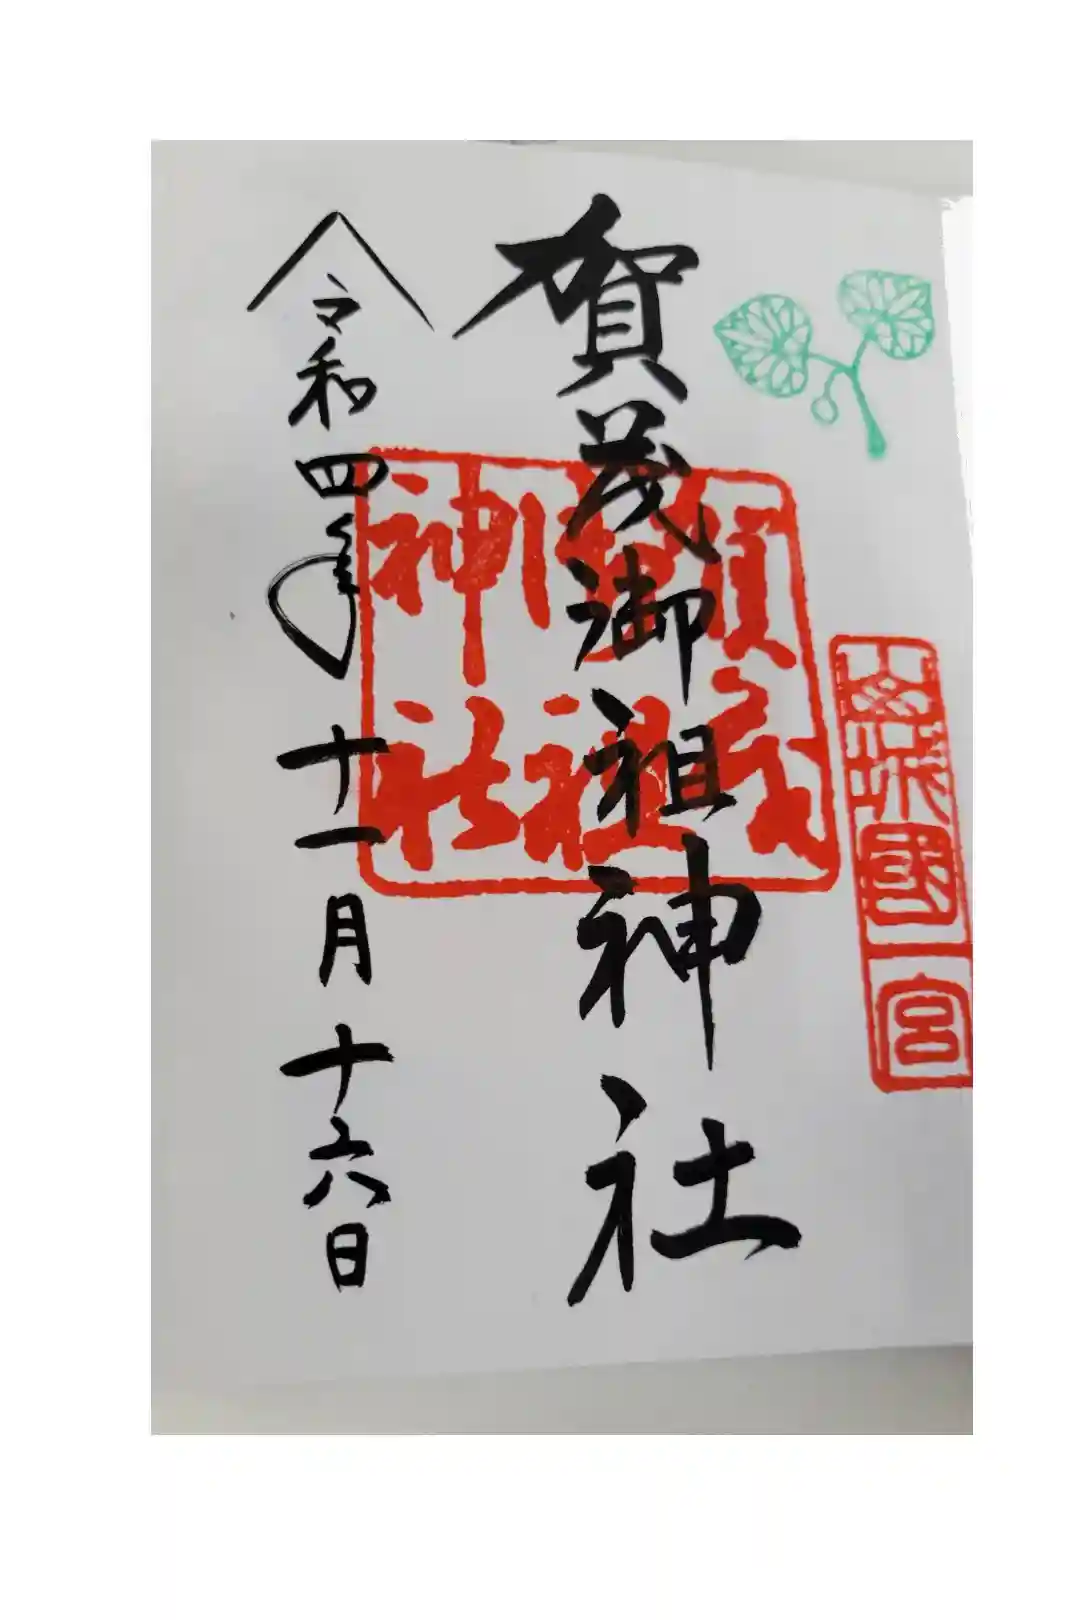 山城國一宮
賀茂御祖神社
賀茂御祖神社
令和四年十一月十六日